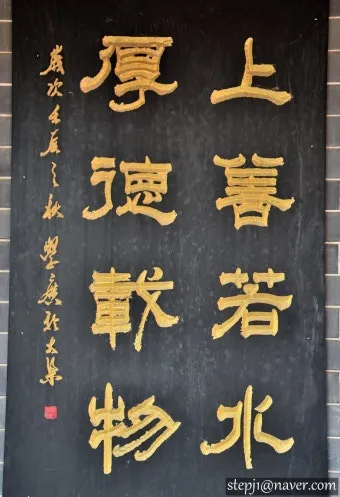 上善若水
厚德載物
歲次壬辰之秋
stepji@naver.com